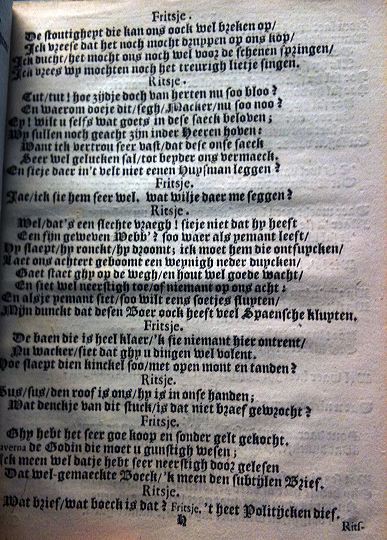 Fritsje.
De stoutigheyt die kan ons oock wel breken op/
Ick vreese dat het noch mocht druppen op ons kop/
Ick ducht/het mocht ons noch wel voor de schenen springen/
Ick vrees wy mochten noch het treurigh lietje singen.
Ritsje.
Tut/tut! hoe zijdje doch van herten nu soo bloo?
En waerom doeje dit/segh/Macker/nu soo noo?
Ey! wilt u selfs wat goets in dese saeck beloven;
Wy sullen noch geacht zijn inder Heeren hoven:
Want ick vertrou seer vast/dat dese onse saeck
Seer wel gelucken sal/tot beyder ons vermaeck.
En sieje daer in't velt niet eenen Huysman leggen?
Fritsje.
Jae/ick sie hem seer wel, wat wilje daer me seggen?
Ritsje.
Wel/dat's een slechte vraegh! sieje niet dat hy heeft
En sijn geweven Webb'? soo waer als yemant leeft/
Hy slaept/hy ronckt/hy droomt; ick moet hem die ontfuycken/
Laet ons achter geboomt een weynigh neder duycken/
Gaet staet ghy op de wegh/en hout wel goede wacht/
En siet wel neerstigh toe/of niemant op ons acht:
En alsje yemant siet/soo wilt eens soetjes fluyten/
Mijn dunckt dat desen Boer oock heeft veel Spaensche kluyten.
Fritsje.
De baen die is heel klaer/'k sie niemant hier ontrent/
Nu wacker/siet dat ghy u dingen wel volent.
Hoe slaept dien kinckel soo/met open mont en tanden?
Ritsje.
Sus/sus/den roof is ons/hy is in onse handen;
Wat denckje van dit stuck/is dat niet braef gewrocht?
Fritsje.
Ghy hebt het seer goe koop en sonder gelt gekocht.
Laverna de Godin die moet u gunstigh wesen;
Ick meen wel datje hebt seer neerstigh door gelesen
Dat wel-gemaeckte Boeck/'k meen den subtijlen Brief.
Ritsje.
Wat brief/wat boeck is dat? Fritsje. 't heet Politijcken dief.
H
Rits-